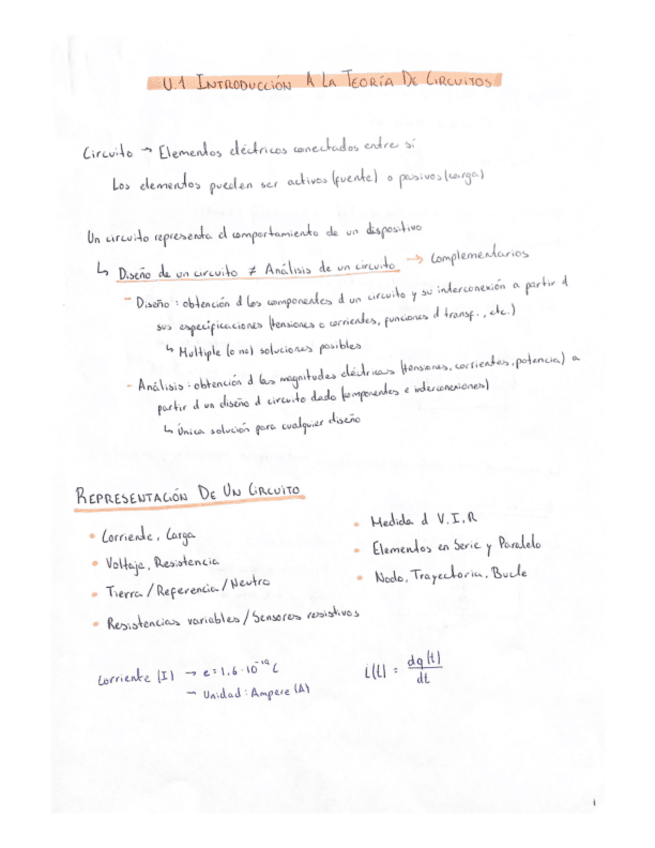 U.1 INTRODUCCIÓN A LA TEORÍA DE CIRCUITOS
Circuito → Elementos eléctricos conectados entre sí
Los elementos pueden ser activos (fuente) o pasivos (carga)
Un circuito representa el comportamiento de un dispositivo
↳ Diseño de un circuito ≠ Análisis de un circuito → Complementarios
- Diseño: obtención d los componentes d un circuito y su interconexión a partir d
sus especificaciones (tensiones o corrientes, funciones d transf., etc.)
↳ Multiple (o no) soluciones posibles
- Análisis: obtención d las magnitudes eléctricas (tensiones, corrientes, potencia) a
partir d un diseño d circuito dado (componentes e interconexiones)
↳ Única solución para cualquier diseño
REPRESENTACIÓN DE UN CIRCUITO
• Corriente, Carga
• Voltaje, Resistencia
• Tierra / Referencia / Neutro
• Resistencias variables / Sensores resistivos
• Medida d V, I, R
• Elementos en Serie y Paralelo
• Nodo, Trayectoria, Bucle
Corriente (I) → e = 1,6 · 10⁻¹⁹ C
→ Unidad: Ampere (A)
i(t) = dq(t) / dt
1